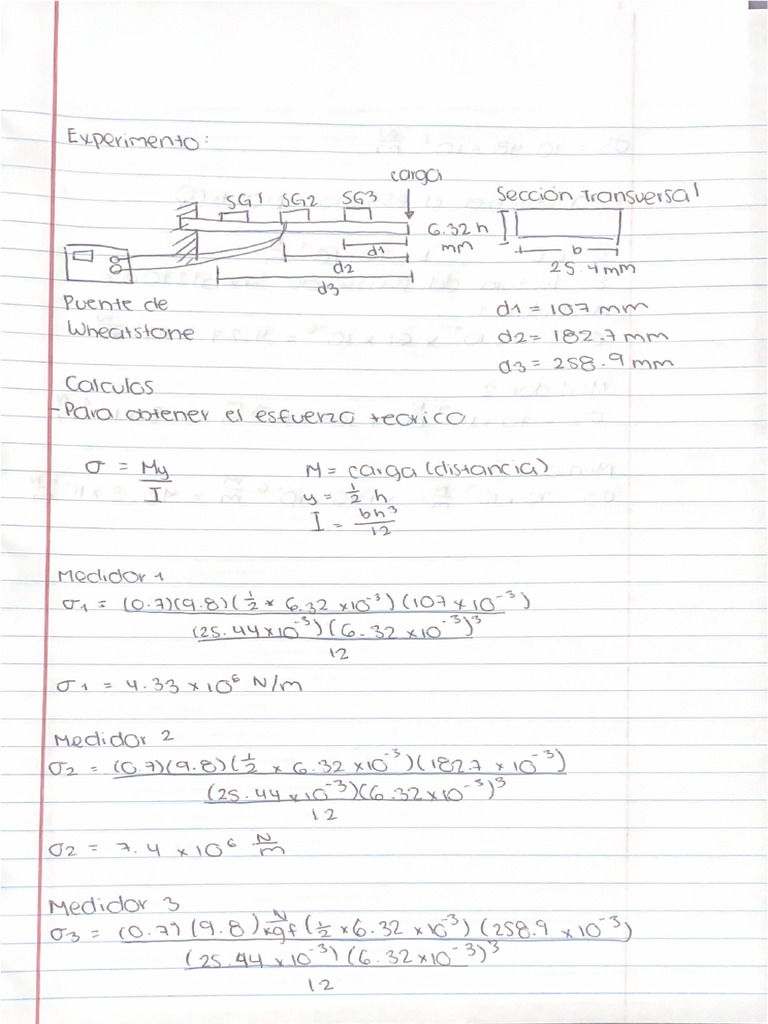 Experimento:
carga
SG1 SG2 SG3 Sección Transversal
6.32 h
mm
d1
d2
d3
b
25.4mm
Puente de
Wheatstone
d1 = 107 mm
d2 = 182.7 mm
d3 = 258.9 mm
Calculos
-Para obtener el esfuerzo teorico
σ = My/I
M = carga (distancia)
y = 1/2 h
I = bh³/12
Medidor 1
σ1 = (0.7)(9.8)(1/2 * 6.32 x10⁻³)(107 x 10⁻³)
(25.44x10⁻³)(6.32 x10⁻³)³
12
σ1 = 4.33 x 10⁶ N/m
Medidor 2
σ2 = (0.7)(9.8)(1/2 x 6.32 x10⁻³)(182.7 x 10⁻³)
(25.44 x10⁻³)(6.32x10⁻³)³
12
σ2 = 7.4 x 10⁶ N/m
Medidor 3
σ3 = (0.7)(9.8) N/kgf (1/2 x 6.32 x 10⁻³)(258.9 x10⁻³)
(25.44 x10⁻³)(6.32x10⁻³)³
12